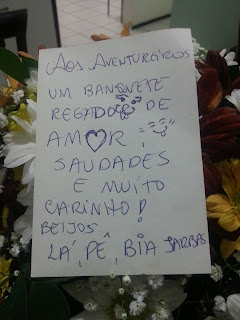 AOS AVENTUREIROS
UM BANQUETE
REGADO DE
AMOR,
SAUDADES
E MUITO
CARINHO!
BEIJOS
LÁ, PÊ, BIA JARBAS